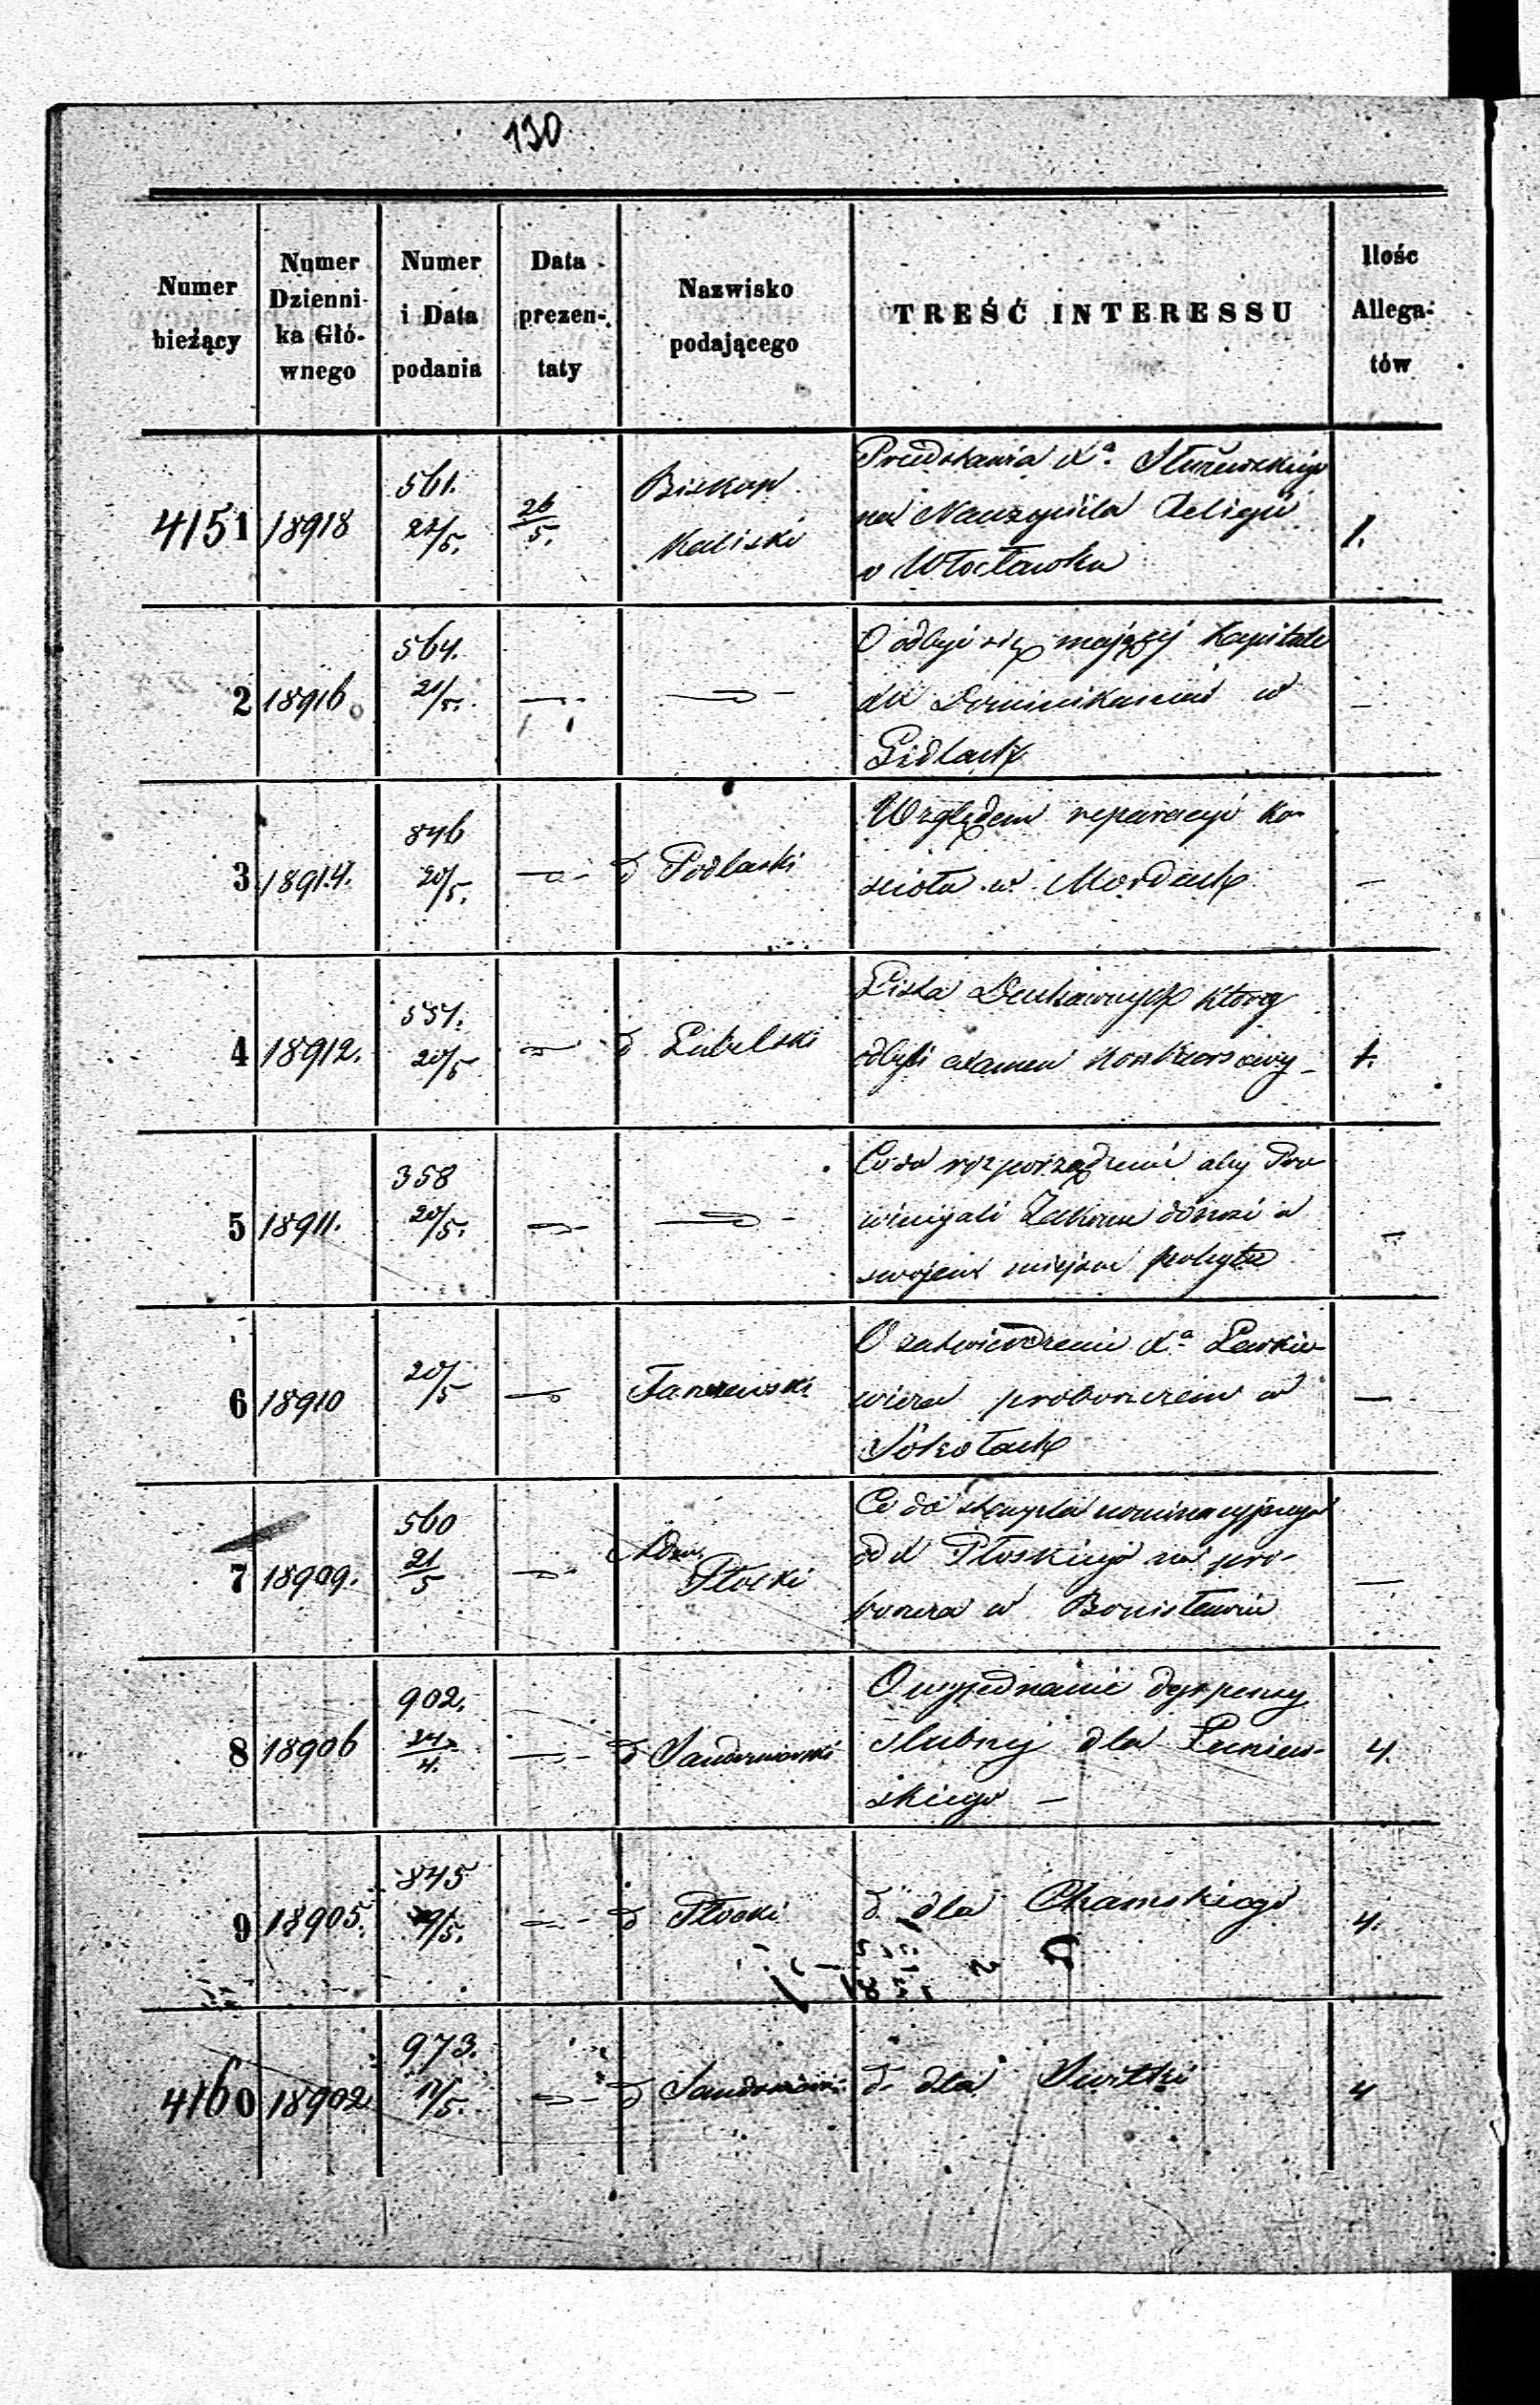 130
Numer bieżący
Numer Dzienni- ka Głó- wnego
Numer i Data podania
Data prezen- taty
Nazwisko podającego
TREŚĆ INTERESSU
Ilość Allega- tów
4151 18918 561. 22/5. 26/5. Biskup Kaliski
Przedstawia Xa.
na Nauczyciela Religii
w Włocławku
1.
2 18916 564. 21/5. — —
O odbyć się mającej Kapitule
XX Dominikanów w
Gidlach
—
3 18914. 846 20/5. — d Podlaski
Względem reparacyi ko-
scioła w Mordach
—
4 18912. 557. 20/5 — d Lubelski
Lista Duchownych którzy
odbyli examen konkursowy
1.
5 18911. 358 20/5. — —
Co do rozporządzenia aby Pro-
wincyali Zakonu donosi o
swojem miejscu pobytu
—
6 18910 20/5 —
O zatwierdzenie Xa
wicza proboszczem w
Sokołach
—
7 18909. 560 21/5 — Adm. Płocki
Co do stempla nominacyjnego
od X Płoskiego na pro-
boszcza w
—
8 18906 902. 24/4. — d Sandomierski
O wyjednanie dyspensy
slubnej dla Łuniew-
skiego —
4.
9 18905. 845 /5. — d Płocki
d dla Chamskiego
4.
4160 18902. 973. 17/5. — d
d. dla Switki
4